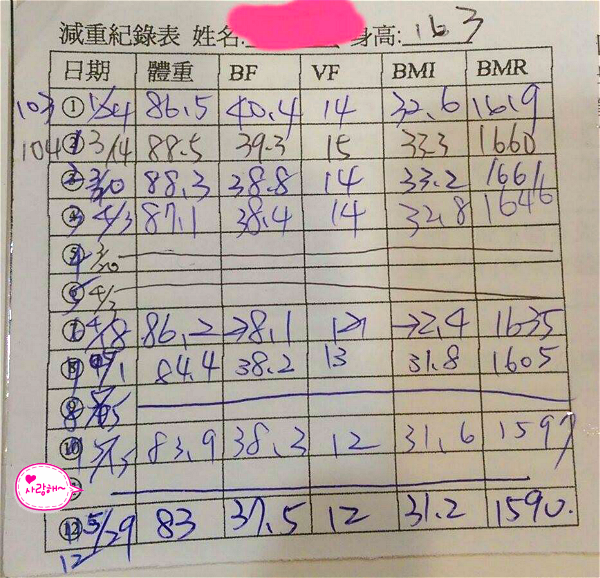 減重紀錄表 姓名: 身高: 163
日期 體重 BF VF BMI BMR
103 ① 86.5 40.4 14 32.6 1619
104 3/14 88.5 39.3 15 33.3 1660
88.3 38.8 14 33.2 1661
4/3 87.1 38.4 14 32.8 1646
⑤
⑥ 4/3
4/8 86.2 38.1 32.4 1635
84.4 38.2 13 31.8 1605
⑨
⑩ 5/15 83.9 38.3 12 31.6 1597
사랑해~
⑫ 5/29 83 37.5 12 31.2 1590.
12